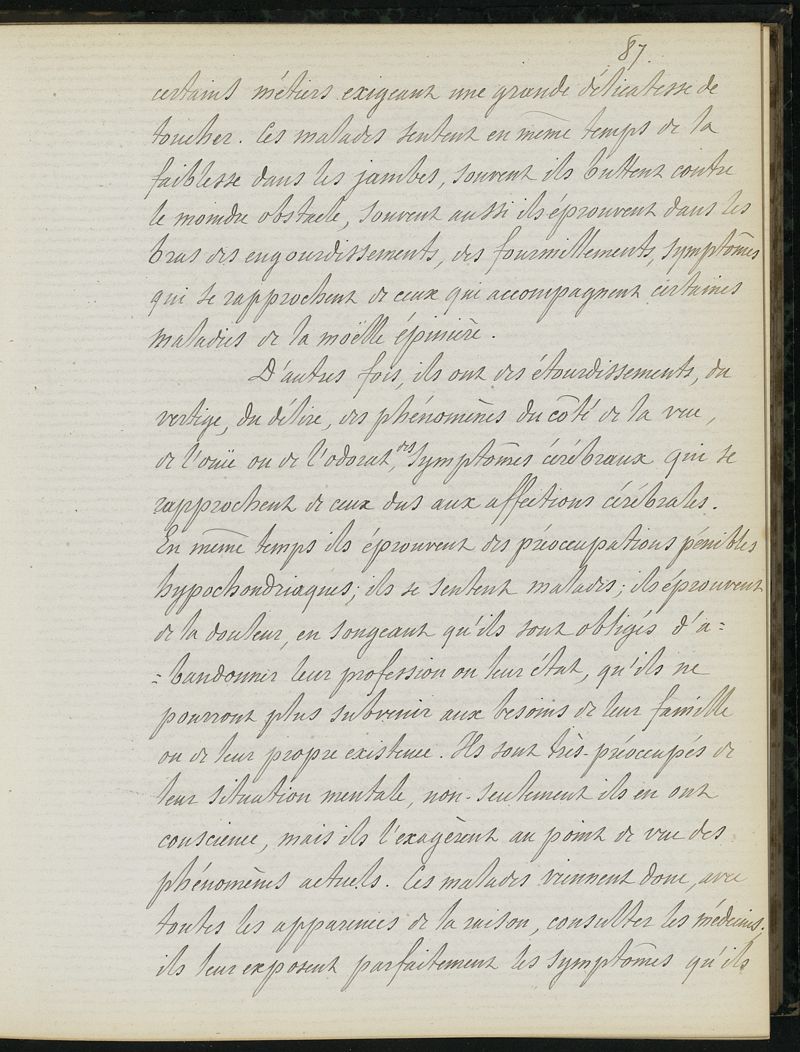 87.
certains métiers exigeant une grande délicatesse de
toucher. Ces malades sentent en même temps de la
faiblesse dans les jambes, souvent ils buttent contre
le moindre obstacle, souvent aussi ils éprouvent dans les
bras des engourdissements, des fourmillements, symptômes
qui se rapprochent de ceux qui accompagnent certaines
maladies de la moëlle épinière.
D'autres fois, ils ont des étourdissements, du
vertige, du délire, des phénomènes du côté de la vue,
de l'ouïe ou de l'odorat, des symptômes cérébraux qui se
rapprochent de ceux dus aux affections cérébrales.
En même temps ils éprouvent des préoccupations pénibles
hypochondriaques; ils se sentent malades; ils éprouvent
de la douleur, en songeant qu'ils sont obligés d'a=
=bandonner leur profession ou leur état, qu'ils ne
pourront plus subvenir aux besoins de leur famille
ou de leur propre existence. Ils sont très-préoccupés de
leur situation mentale, non-seulement ils en ont
conscience, mais ils l'exagèrent au point de vue des
phénomènes actuels. Ces malades viennent donc, avec
toutes les apparences de la raison, consulter les médecins;
ils leur exposent parfaitement les symptômes qu'ils